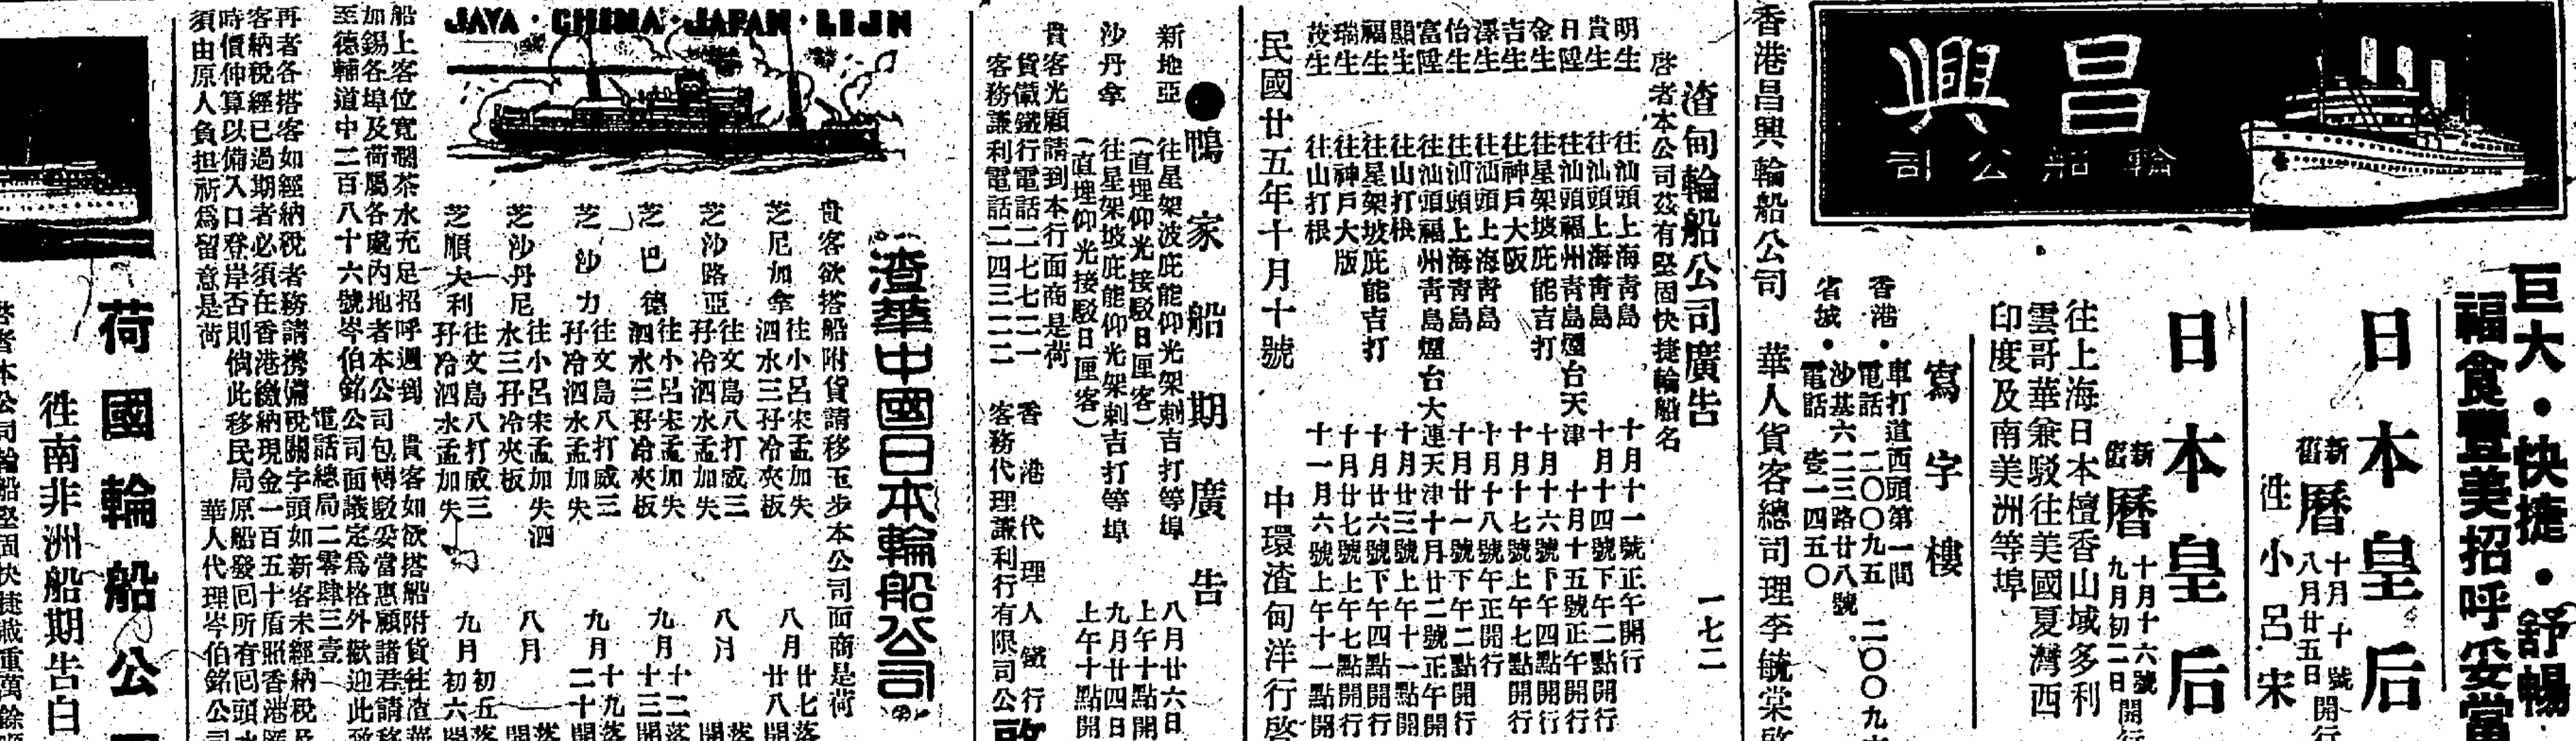 昌興
輪船公司
巨大・快捷・舒暢
福食豐美招呼妥當
日本皇后
新曆十月十號
舊曆八月廿五日開行
往小呂宋
日本皇后
新曆十月十六號
舊曆九月初二日開行
往上海日本檀香山域多利
雲哥華兼駁往美國夏灣西
印度及南美洲等埠
寫字樓
香港・車打道西頭第一間
電話二〇〇九五
省城・沙基六二三路廿八號
電話壹一四五〇
香港昌興輪船公司 華人貨客總司理李毓棠啟
渣甸輪船公司廣告
一七二
啓者本公司茲有堅固快捷輪船名
明生 往汕頭上海青島 十月十一號正午開行
貴生 往汕頭上海青島 十月十四號下午二點開行
日陞 往汕頭福州青島煙台天津 十月十五號正午開行
金生 往星架坡庇能吉打 十月十六號下午四點開行
吉生 往神戶大阪 十月十七號上午七點開行
澤生 往汕頭上海青島 十月十八號午正開行
怡生 往汕頭上海青島 十月廿一號下午二點開行
富陞 往汕頭福州青島煙台大連天津 十月廿二號正午開
顯生 往山打根 十月廿三號上午十一點開
福生 往星架坡庇能吉打 十月廿六號下午四點開行
瑞生 往神戶大版 十月廿七號上午七點開行
茂生 往山打根 十一月六號上午十一點開
民國廿五年十月十號 中環渣甸洋行啓
●鴨家船期廣告
新地亞 往星架波庇能仰光架剌吉打等埠 八月廿六日
(直埋仰光接駁日厘客) 上午十點開
沙丹拿 往星架坡庇能仰光架剌吉打等埠 九月廿四日
(直埋仰光接駁日厘客) 上午十點開
貴客光顧請到本行面商是荷
貨儎鐵行電話二七七二一 香港代理人鐵行
客務謙利電話二四三二二 客務代理謙利行有限公司啟
JAVA・CHINA・JAPAN・LIJN
渣華中國日本輪船公司
貴客欲搭船附貨請移玉步本公司面商是荷
芝尼加拿 往小呂宋孟加失 八月廿七落
泗水三孖冷夾板 廿八開
芝沙路亞 往文島八打威三 八月
孖冷泗水孟加失
芝巴德 往小呂宋孟加失 九月十二落
泗水三孖冷夾板 十三開
芝沙力 往文島八打威三 九月十九落
孖冷泗水孟加失 二十開
芝沙丹尼 往小呂宋孟加失泗 八月
水三孖冷夾板
芝順大利 往文島八打威三 九月初五落
孖冷泗水孟加失 初六開
船上客位寬闊茶水充足招呼週到 貴客如欲搭船附貨往渣華
加錫各埠及荷屬各處內地者本公司包轉駁妥當惠顧諸君請移
至德輔道中二百八十六號岑伯銘公司面議定為格外歡迎此致
電話總局二零肆三壹
再者各搭客如經納稅者務請携備稅關字頭如新客未經納稅及
客納稅經已過期者必須在香港繳納現金一百五十盾照香港匯
時價伸算以備入口登岸否則倘此移民局原船發回所有回頭水
須由原人負担祈為留意是荷 華人代理岑伯銘公司
荷國輪船公司
往南非洲船期告白
啓者本公司輪船堅固快捷載重萬餘